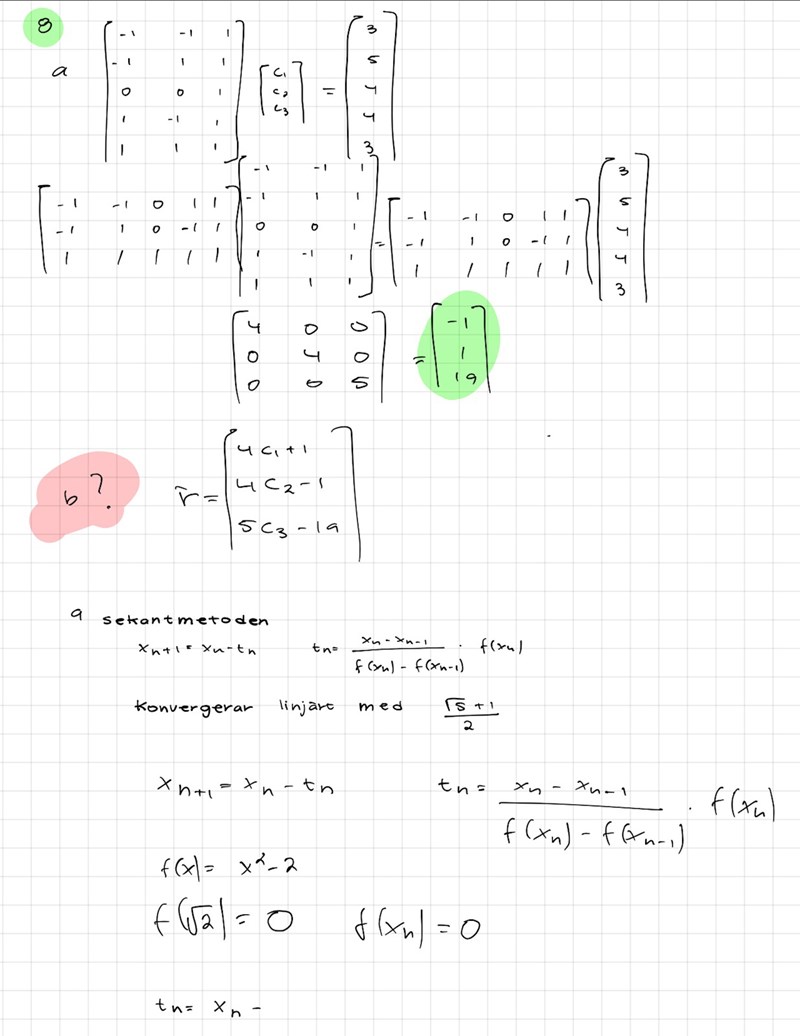 8
a
[-1 -1 1; -1 1 1; 0 0 1; 1 -1 1; 1 1 1] [c₁; c₂; c₃] = [3; 5; 4; 4; 3]
[-1 -1 0 1 1; -1 1 0 -1 1; 1 1 1 1 1] [-1 -1 1; -1 1 1; 0 0 1; 1 -1 1; 1 1 1] = [-1 -1 0 1 1; -1 1 0 -1 1; 1 1 1 1 1] [3; 5; 4; 4; 3]
[4 0 0; 0 4 0; 0 0 5] = [-1; 1; 19]
b ? r̄ = [4c₁+1; 4c₂-1; 5c₃-19]
9 sekantmetoden
xₙ₊₁ = xₙ - tₙ tₙ = (xₙ - xₙ₋₁)/(f(xₙ) - f(xₙ₋₁)) · f(xₙ)
konvergerar linjärt med (√5 + 1)/2
xₙ₊₁ = xₙ - tₙ tₙ = (xₙ - xₙ₋₁)/(f(xₙ) - f(xₙ₋₁)) · f(xₙ)
f(x) = x² - 2
f(√2) = 0 f(xₙ) = 0
tₙ = xₙ -